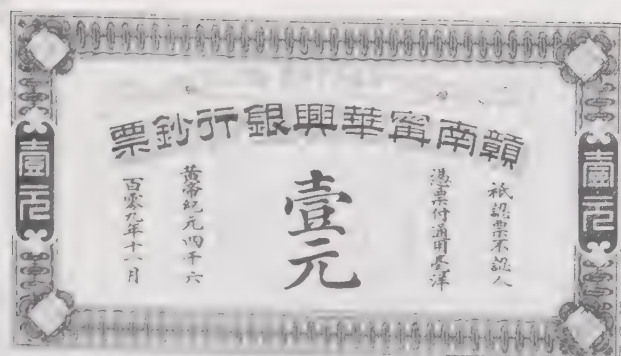 贛南寗華興銀行鈔票
壹元
祇認票不認人
憑票付通用毫洋
壹元
黃帝紀元四千六
百零九年十一月
壹元